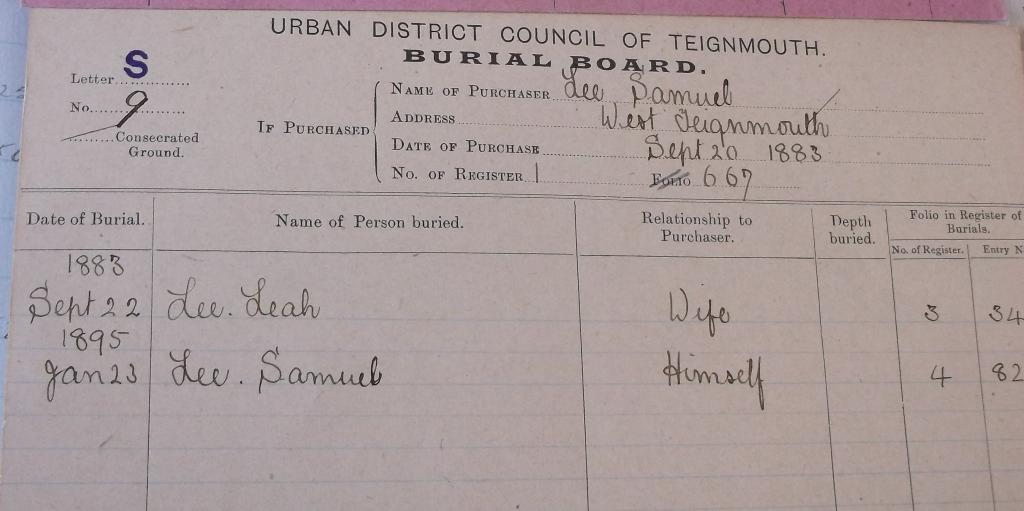 URBAN DISTRICT COUNCIL OF TEIGNMOUTH.
BURIAL BOARD.
Letter S
No. 9
Consecrated
Ground.
IF PURCHASED
NAME OF PURCHASER Lee Samuel
ADDRESS West Teignmouth
DATE OF PURCHASE Sept 20 1883
NO. OF REGISTER 1 FOLIO 667
Date of Burial. Name of Person buried. Relationship to Purchaser. Depth buried. Folio in Register of Burials.
No. of Register. Entry N
1883
Sept 22 Lee. Leah Wife 3 34
1895
Jan 23 Lee. Samuel Himself 4 82